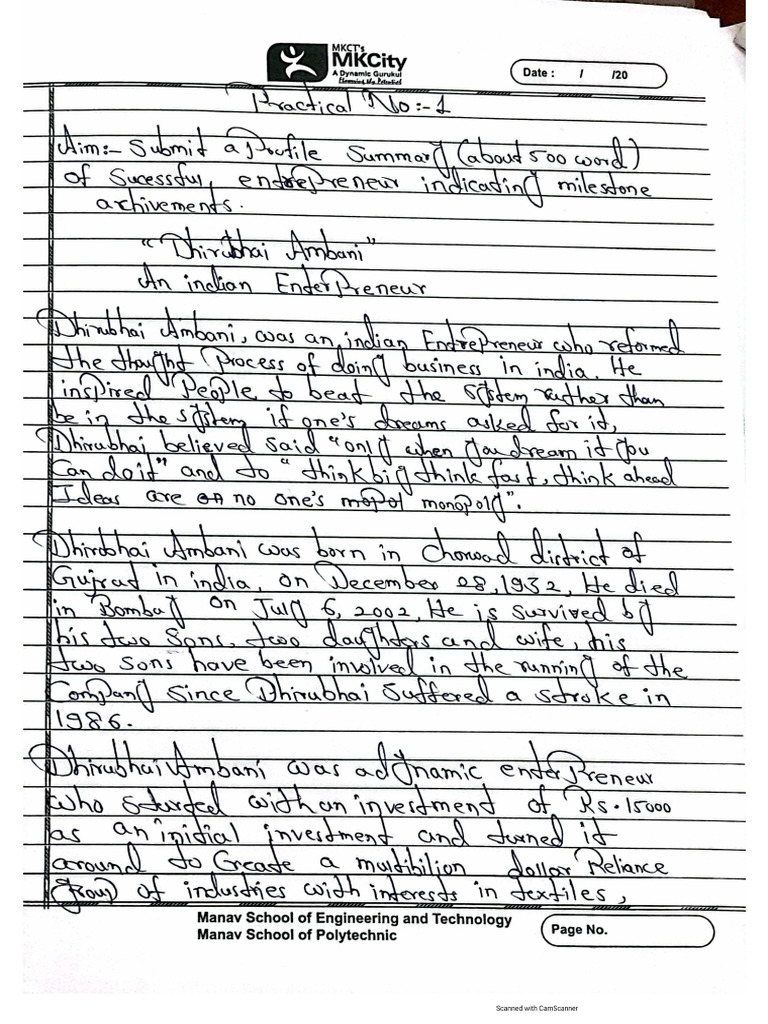 MKCT's
MKCity
A Dynamic Gurukul
Planning the Potential
Date : / /20
Practical No :- 1
Aim:- Submit a Profile Summary (about 500 word)
of Sucessful, entrepreneur indicating milestone
achivements.
"Dhirubhai Ambani"
An indian EnterPreneur
Dhirubhai Ambani, was an indian EntrePreneur who reformed
the thought Process of doing business in india. He
inspired People to beat the system rather than
be in the system if one's dreams asked for it,
Dhirubhai believed said "only when you dream it you
Can do it" and to "think big think fast, think ahead
Ideas are no one's monopoly".
Dhirubhai Ambani was born in Chorwad district of
Gujrat in india, on December 28, 1932, He died
in Bombay on July 6, 2002, He is survived by
his two Sons, two daughters and wife, his
two sons have been involved in the running of the
Company since Dhirubhai suffered a stroke in
1986.
Dhirubhai Ambani was a dynamic enterPreneur
who started with an investment of Rs. 15000
as an initial investment and turned it
around to Create a multibilion dollar Reliance
Group of industries with interests in textiles,
Manav School of Engineering and Technology
Manav School of Polytechnic
Page No.
Scanned with CamScanner